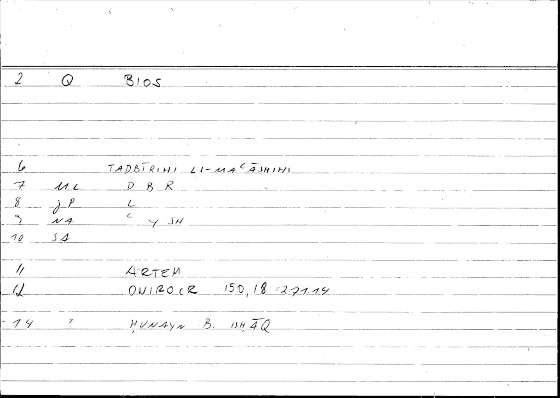 2 Q BIOS
6 TADBĪRIHI LI-MAʿĀSHIHI
7 ML D B R
8 JP L
9 NA ʿ Y SH
10 SA
11 ARTEM
12 ONIROCR 150,18 271.14
14 " ḤUNAYN B. ISḤĀQ